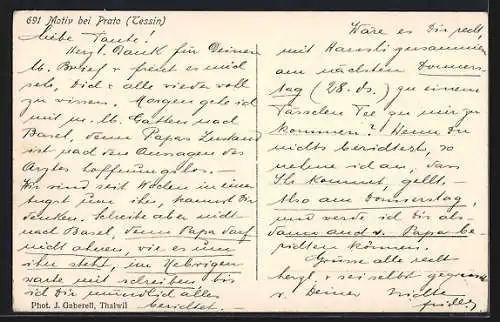 691 Motiv bei Prato (Tessin)
Liebe Tante!
Herzl. Dank für Deinen
lb. Brief & freut es mich
sehr, Dich & alle wieder wohl
zu wissen. Morgen gehe ich
mit m. lb. Gatten nach
Basel, denn Papas
ist nach den Aussagen des
Arztes hoffnungslos.–
Wir sind seit Wochen in einer
Angst um ihn, kannst Dir
denken. Schreibe aber nicht
nach Basel, denn Papa darf
nicht ahnen, wie es um
ihn steht, im Uebrigen
warte mit schreiben bis
ich Dir mündlich alles
berichtet.–
Phot. J. Gaberell, Thalwil
Wäre es Dir recht,
mit Hansli zusammen
am nächsten Donners-
tag (28. ds.) zu einem
Tässchen Tee zu mir zu
kommen? Wenn Du
nichts berichtest, so
nehme ich an, dass
Ihr kommt, gellt.–
Also am Donnerstag,
und werde ich Dir als-
dann auch v. Papa be-
richten können.
Grüsse alle recht
herzl. & sei selbst gegrüsst
v. Deiner Nichte